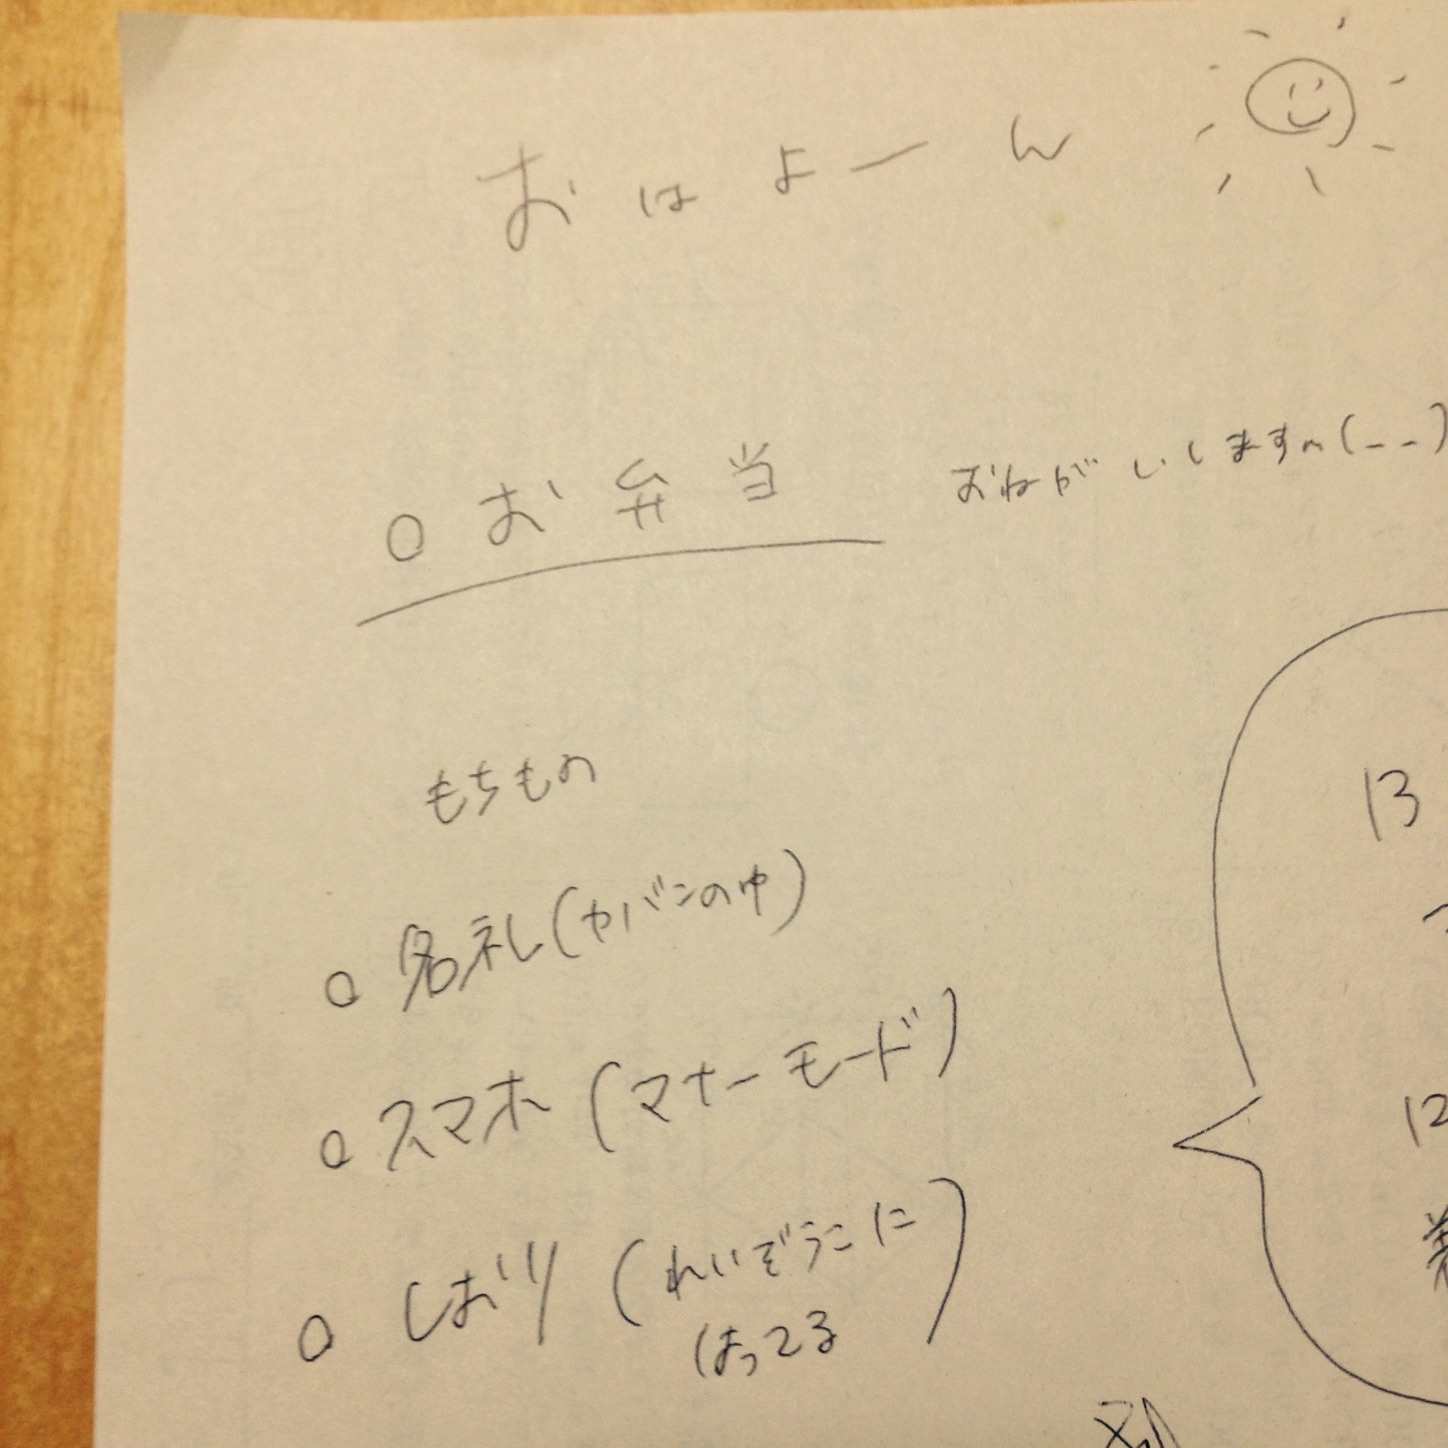 おはよーん
○お弁当 おねがいしますm(--)
もちもの
○名札(カバンの中)
○スマホ(マナーモード)
○しおり(れいぞうこに
はってる)
13
12